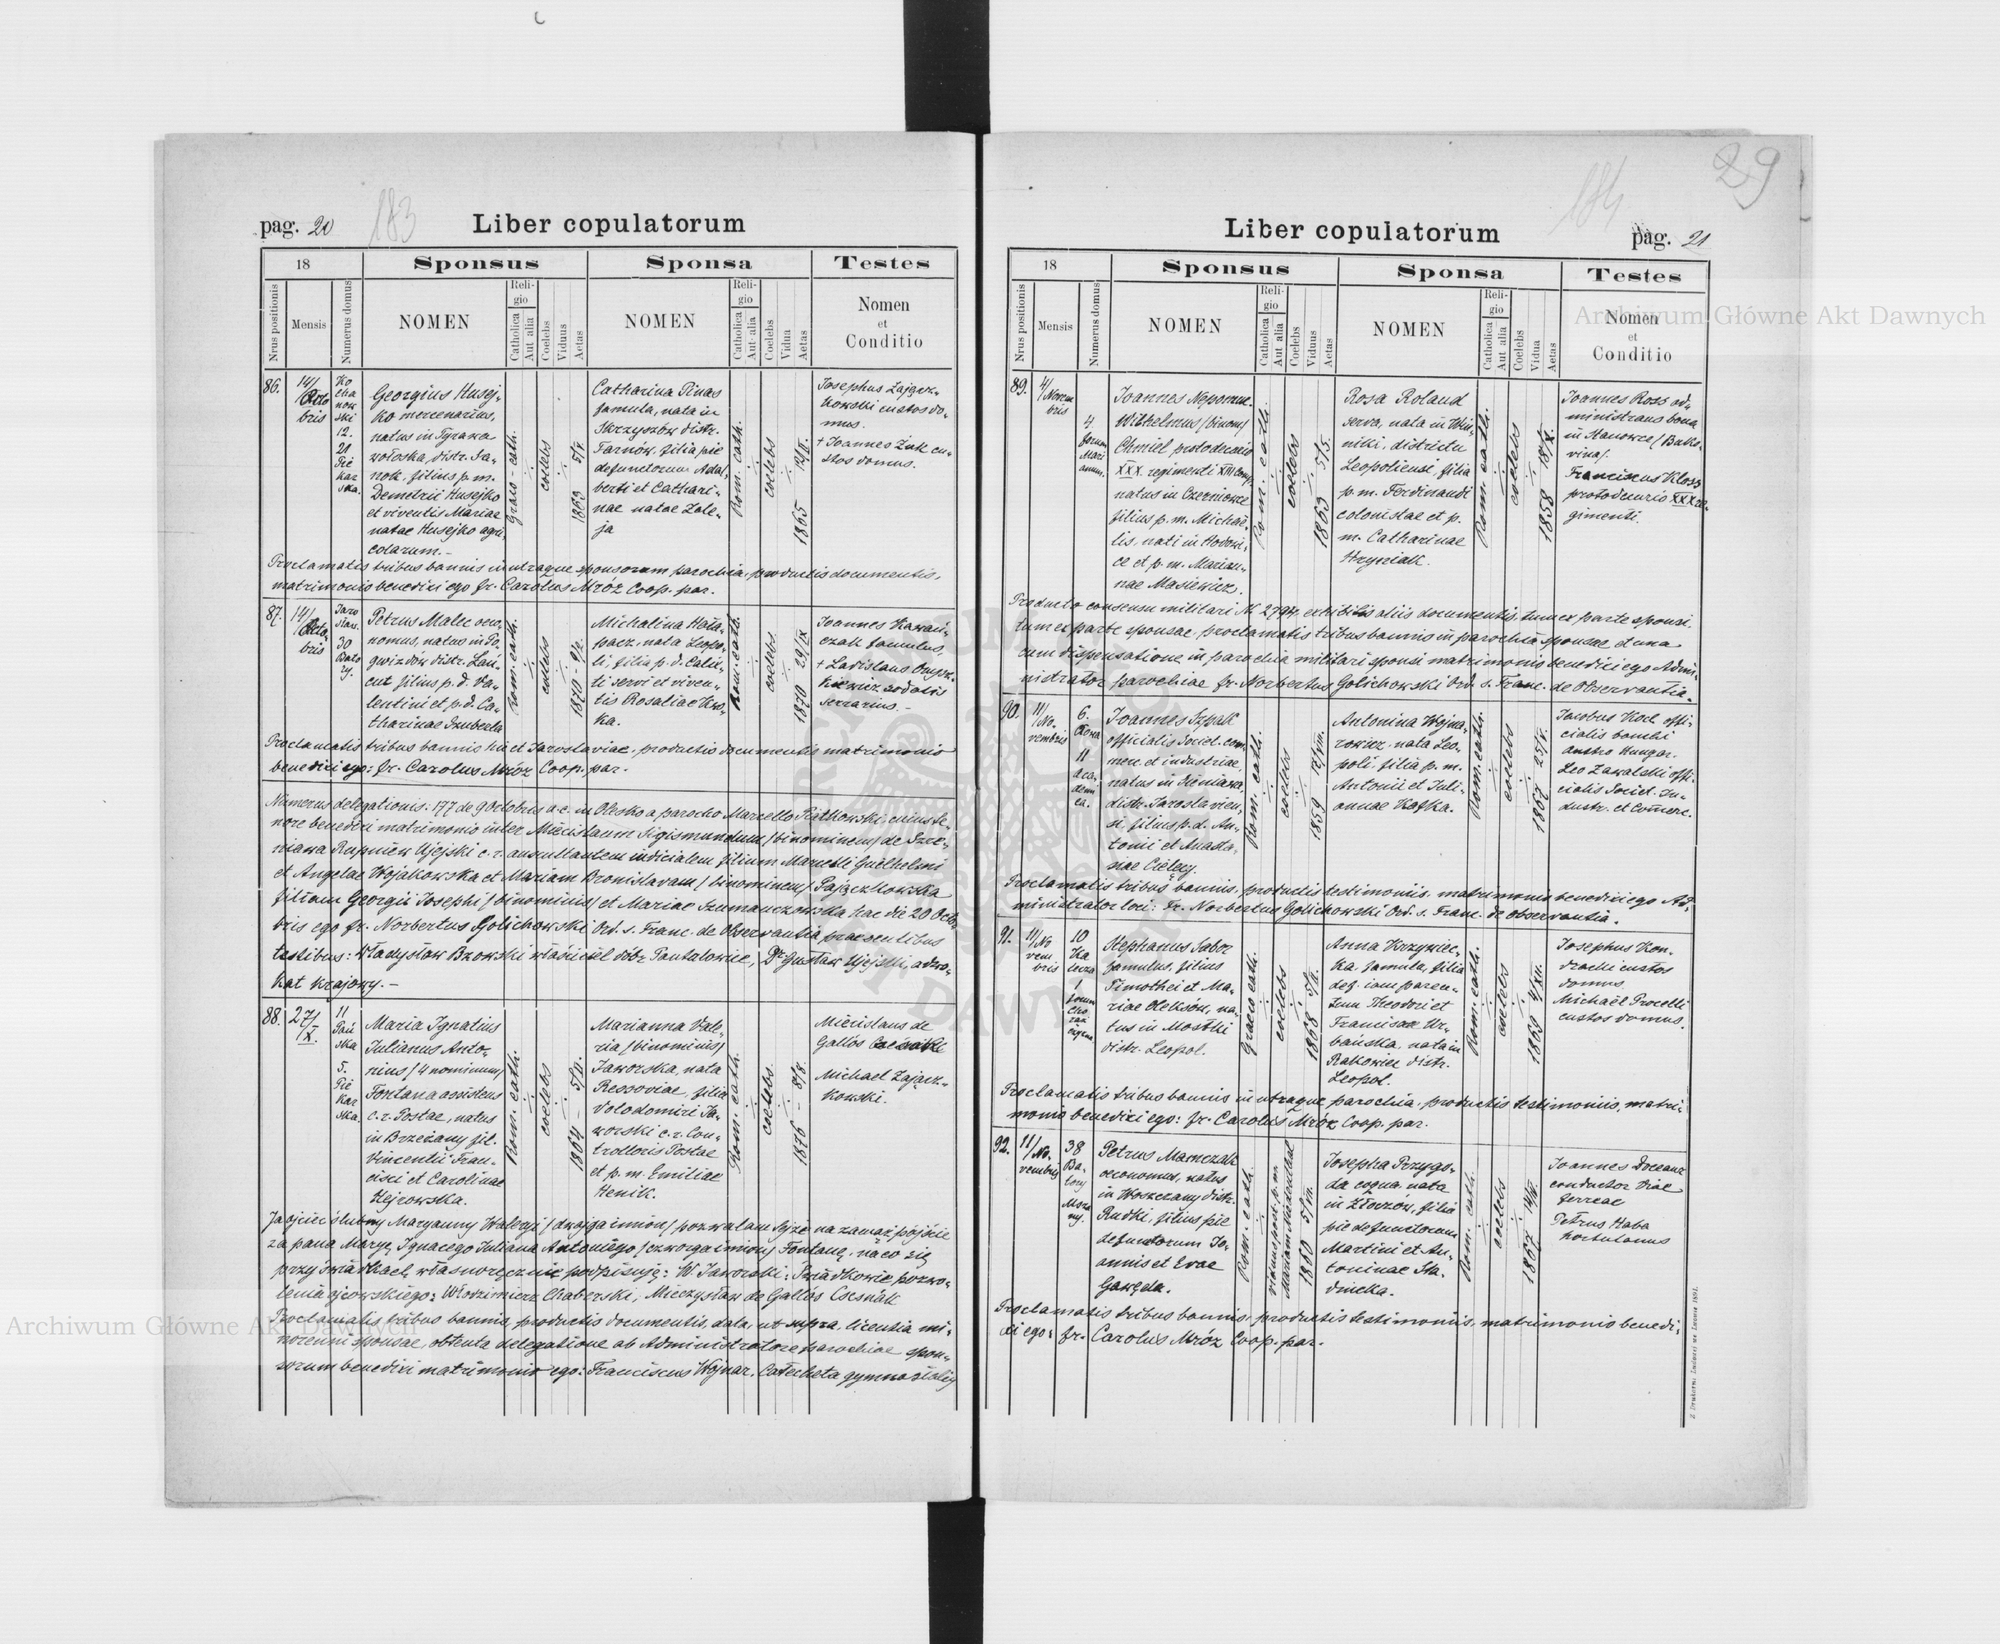 pag. 20
183
Liber copulatorum
18
Sponsus
Sponsa
Testes
Nrus positionis
Mensis
Numerus domus
NOMEN
Religio
Catholica
Aut alia
Coelebs
Viduus
Aetas
NOMEN
Religio
Catholica
Aut alia
Coelebs
Vidua
Aetas
Nomen
et
Conditio
86.
14/
Octo
bris
Ko
cha
now
ski
12.
21
Pie
kar
ska.
Georgius Husej-
ko mercenarius,
natus in Tyrawa
wołoska, distr. Sa-
nok, filius p. m.
Demetrii Husejko
et viventis Mariae
natae Husejko agri-
colarum.-
Graeco-cath.
coelebs
1863 5/V.
Catharina Pinas
famula, nata in
Skrzyszów distr.
Tarnów, filia pie
defunctorum Adal-
berti et Cathari-
nae natae Zale-
ja
Rom. cath.
coelebs
1865 12/II.
Josephus Zającz-
kowski custos do-
mus.
+ Joannes Żuk cu-
stos domus.
Proclamatis tribus bannis in utraque sponsorum parochia, productis documentis,
matrimonio benedixi ego fr. Carolus Mróz Coop. par.
87.
14/
Octo-
bris
Jaro
slau.
30
Bato
ry.
Petrus Malec oeco-
nomus, natus in Po-
gwizdów distr. Łań-
cut filius p. d. Va-
lentini et p. d. Ca-
tharinae Szuberla
Rom. cath.
coelebs
1870 9/2.
Michalina Hała-
pacz, nata Leopo-
li, filia p. d. Calix-
ti servi et viven-
tis Rosaliae Kro-
ka.
Rom. cath.
coelebs
1870 29/IX
Joannes Kawań-
czak famulus,
+ Ladislaus Onysz-
kiewicz sodalis
serrarius.-
Proclamatis tribus bannis hic et Jaroslaviae, productis documentis matrimonio
benedixi ego: fr. Carolus Mróz Coop. par.
Numerus delegationis: 177 de 9 Octobris a. c. in Olesko a parocho Marcello Piątkowski, cuius te-
nore benedixi matrimonio inter Miecislaum Sigismundum /binominem/ de
Rupniew Ujejski c. r. auscultantem iudicialem filium Marcelli Guilhelmi
et Angelae Wojakowska et Mariam Bronislavam /binominem/ Pajączkowska
filiam Georgii Josephi /binominis/ et Mariae Szumanczowska hac die 20 Octo-
bris ego fr. Norbertus Golichowski Ord. s. Franc. de Observantia praesentibus
testibus: Władysław Bzowski właściciel dóbr Pantalowice, Dr Gustaw Ujejski, adwo-
kat krajowy.-
88.
27/
X.
11
Pań
ska
5.
Pie
kar
ska.
Maria Ignatius
Julianus Anto-
nius /4 nominum/
Fontana assistens
c. r. Postae, natus
in Brzeżany fil.
Vincentii Fran-
cisci et Carolinae
Hejrowska.
Rom. cath.
coelebs
1864 - 5/V.
Marianna Vale-
ria /binominis/
Jaworska, nata
Ressoviae, filia
Volodomiri Ja-
worski c. r. Con-
trolloris Postae
et p. m. Emiliae
Henik.
Rom. cath.
coelebs.
1876 - 8/8.
Miecislaus de
Gallós
Michael Zającz-
kowski.
Ja ojciec ślubny Maryanny Waleryi /dwojga imion/ pozwalam tejże na zamąż pójście
za pana Maryę Ignacego Juliana Antoniego /czworga imion/ Fontanę, na co się
przy świadkach własnoręcznie podpisuję: W Jaworski: Świadkowie pozwo-
lenia ojcowskiego: Włodzimierz Chaberski, Mieczysław de Gallós Csesnák
Proclamatis tribus bannis, productis documentis, data, ut supra, licentia mi-
norenni sponsae, obtenta delegatione ab Administratore parochiae spon-
sorum benedixi matrimonio ego: Franciscus Wojnar, Catecheta gymnasialis
29
184
Liber copulatorum
pag. 21
18
Sponsus
Sponsa
Testes
Nrus positionis
Mensis
Numerus domus
NOMEN
Religio
Catholica
Aut alia
Coelebs
Viduus
Aetas
NOMEN
Religio
Catholica
Aut alia
Coelebs
Vidua
Aetas
Nomen
et
Conditio
89.
4/Novem
bris
4
forum
Mari
anum.
Joannes Nepomuc.
Wilhelmus /binom/
Chmiel protodecurio
XXX. regimenti XII comp.
natus in Czerniowce
filius p. m. Michaë-
lis, nati in Hodowi-
ce et p. m. Marian-
nae Masiewicz.
Rom. cath.
coelebs
1863 5/5.
Rosa Roland
serva, nata in Win-
niki, districtu
Leopoliensi, filia
p. m. Ferdinandi
colonistae et p.
m. Catharinae
Hryniak.
Rom. cath.
coelebs
1858 18/X.
Joannes Ross ad-
ministrans bona
in Stanowce /Buko-
vina/.
Franciscus Kloss
protodecurio XXX re-
gimenti.
Producto consensu militari N. 2794, exhibitis aliis documentis, tum ex parte sponsi
tum ex parte sponsae, proclamatis tribus bannis in parochia sponsae et una
cum dispensatione in parochia militari sponsi matrimonio benedixi ego Admi-
nistrator parochiae fr. Norbertus Golichowski Ord. s. Franc. de Observantia.
90.
11/
No-
vembris
6.
11
aca
demi
ca.
Joannes Szpak
officialis Societ. com-
merc. et industriae,
natus in Sieniawa,
distr. Jaroslavien-
si, filius p. d. An-
tonii et Anasta-
siae Cielecy.
Rom. cath.
coelebs
1859 12/VIII.
Antonina Wojna-
rowicz, nata Leo-
poli, filia p. m.
Antonii et Juli-
annae Kofka.
Rom. cath.
coelebs
1867 25/V.
Jacobus Koch offi-
cialis bambi
austro Hungar.
Leo Zawalski offi-
cialis Societ. In-
dustr. et Comerc.
Proclamatis tribus bannis, productis testimoniis, matrimonio benedixi ego Ad-
ministrator loci: Fr. Norbertus Golichowski Ord. s. Franc. de observantia.
91.
11/No
vem
bris
10
Ka
lecza
1
forum
Stephanus Sabor
famulus, filius
Timothei et Ma-
riae Oleksów, na-
tus in Mostki
distr. Leopol.
Graeco cath.
coelebs
1868
Anna Krzywiec-
ka famula, filia
def. iam paren-
tum Theodori et
Franciscae Ur-
bańska, nata in
Rakowiec distr.
Leopol.
Rom. cath.
coelebs
1869 4/XII.
Josephus Kon-
dracki custos
domus
Michaël Procelli
custos domus.
Proclamatis tribus bannis in utraque parochia, productis testimoniis, matri-
monio benedixi ego: fr. Carolus Mróz Coop. par.
92.
11/No-
vembris
38
Ba-
tory
Petrus Marnczak
oeconomus, natus
in Woszczany distr.
Rudki, filius pie
defunctorum Jo-
annis et Evae
Gawęda.
Rom. cath.
viduus post p. m.
1860 5/VII.
Josepha Przygo-
da coqua nata
in Złoczów, filia
pie defunctorum
Martini et An-
toninae Sta-
dnicka.
Rom. cath.
coelebs
1867 14/IV.
Joannes Doceanz
conductor viae
ferreae
Petrus Haba
hortulanus
Proclamatis tribus bannis, productis testimoniis, matrimonio benedi-
xi ego: fr. Carolus Mróz Coop. par.
Z Drukarni Ludowej we Lwowie 1891.
Archiwum Główne Akt Dawnych
Archiwum Główne Akt Dawnych